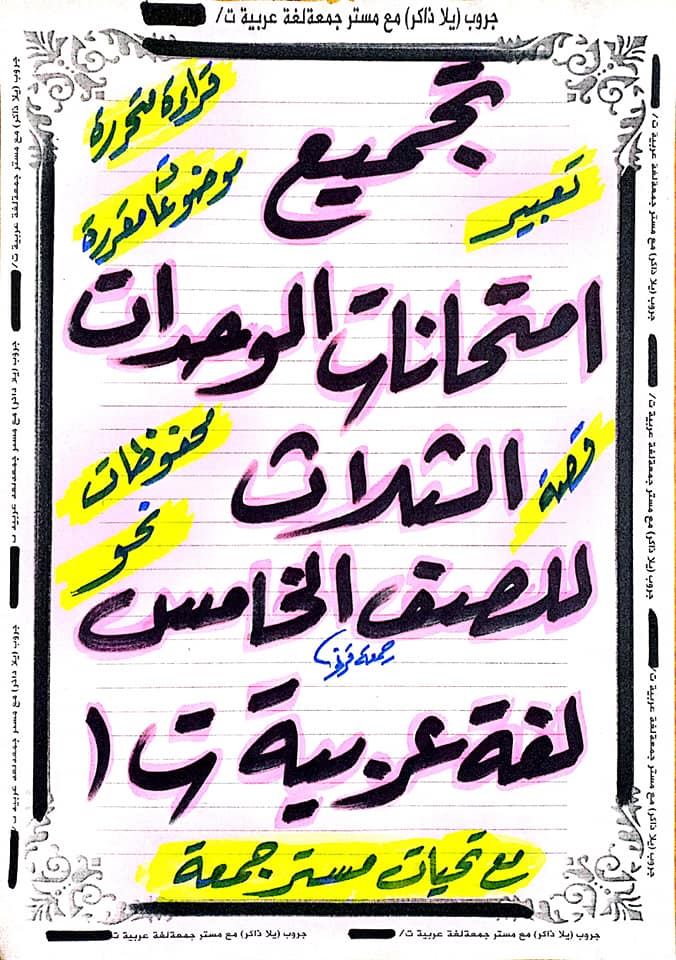 جروب (يلا ذاكر) مع مستر جمعة لغة عربية ت/
قراءة متحررة
تجميع
موضوعات مقررة
تعبير
امتحانات الوحدات
محفوظات
الثلاث
قصة
نحو
للصف الخامس
جمعة قرني
لغة عربية ت ١
مع تحيات مستر جمعة
جروب (يلا ذاكر) مع مستر جمعة لغة عربية ت/
جروب (يلا ذاكر) مع مستر جمعة لغة عربية ت/
جروب (يلا ذاكر) مع مستر جمعة لغة عربية ت/
جروب (يلا ذاكر) مع مستر جمعة لغة عربية ت/
جروب (يلا ذاكر) مع مستر جمعة لغة عربية ت/
جروب (يلا ذاكر) مع مستر جمعة لغة عربية ت/
جروب (يلا ذاكر) مع مستر جمعة لغة عربية ت/
جروب (يلا ذاكر) مع مستر جمعة لغة عربية ت/